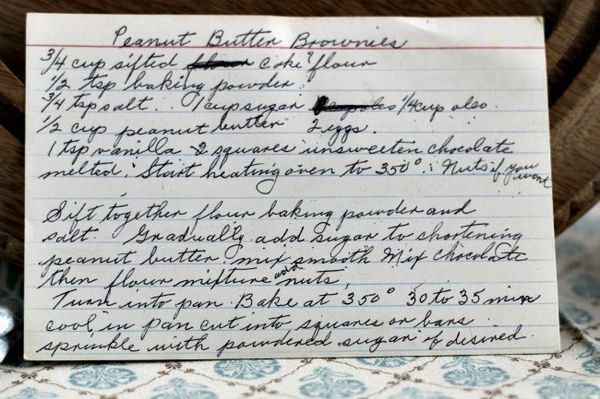 Peanut Butter Brownies
3/4 cup sifted cake? flour
1/2 tsp baking powder.
3/4 tsp salt. 1 cup sugar 1/4 cup also.
1/2 cup peanut butter 2 eggs.
1 tsp vanilla 2 squares unsweeten chocolate
melted; Start heating oven to 350°; Nuts if you want
Sift together flour baking powder and
salt. Gradually add sugar to shortening
peanut butter mix smooth Mix chocolate
then flour mixture and nuts,
Turn into pan. Bake at 350° 30 to 35 min
cool, in pan cut into squares or bars
sprinkle with powdered sugar if desired.